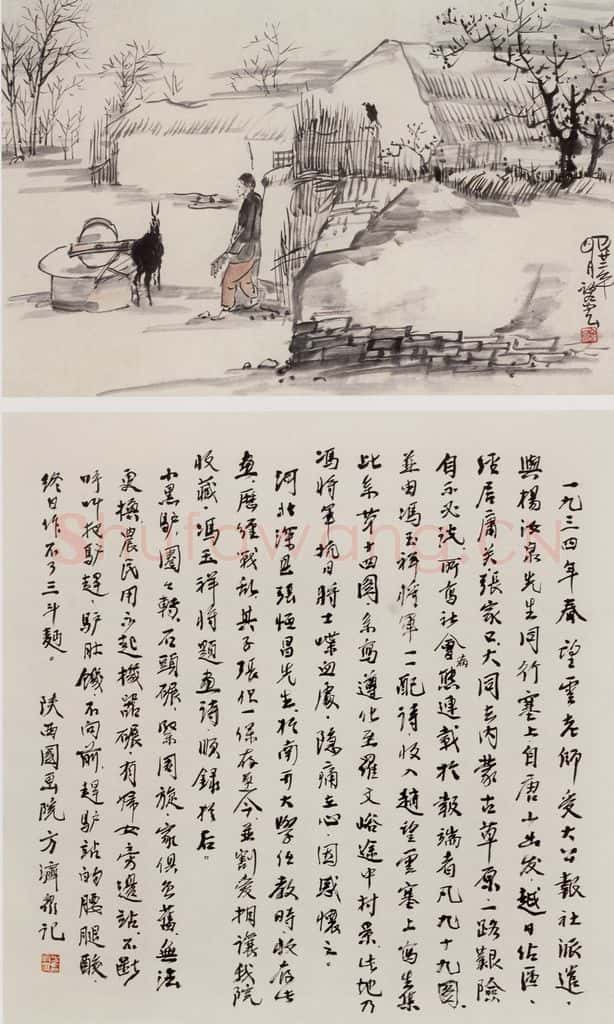 廿三年
四月望云
一九三四年春望雲老師受大公報社派遣，
與楊汝泉先生同行塞上自唐山出发，越日佔区，
經居庸关張家口大同去内蒙古草原，一路艱險
自不必說，所寫社會病態連載於報端者凡九十九图，
並由馮玉祥將軍一一配詩收入趙望雲塞上寫生集
此系第十四图，系寫遵化至羅文峪途中村景，此地乃
馮將軍抗日將士喋血處，隱痛在心，因感懷之。
河北深县張恒昌先生，於南开大學任教時收存此
画，歷經戰乱其子張保一保存至今，並割爱相讓我院
收藏，馮玉祥將題画詩，順録於后。
小黑驴，圈々轉，石頭碾，緊周旋，家俱色舊無法
更換，農民用不起機器碾，有婦女旁邊站，不断
呼叫把驴趕，驴肚饿，不向前，趕驴站的腰腿酸，
終日作不了三斗麵。
陕西國画院方濟众记
Shufawang.CN